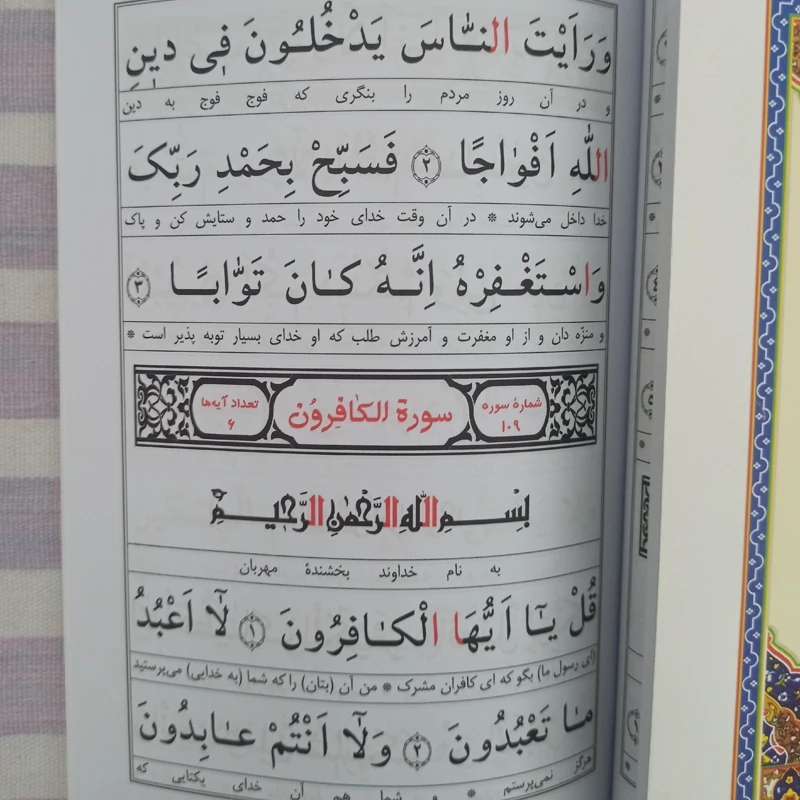 وَرَاَیْتَ النّٰاسَ یَدْخُلُونَ فِی دینِ
و در آن روز مردم را بنگری که فوج فوج به دین
اللّٰهِ اَفْوٰاجًا ﴿۲﴾ فَسَبِّحْ بِحَمْدِ رَبِّکَ
خدا داخل می‌شوند * در آن وقت خدای خود را حمد و ستایش کن و پاک
وَاسْتَغْفِرْهُ اِنَّهُ کٰانَ تَوّٰابًا ﴿۳﴾
و منزّه دان و از او مغفرت و آمرزش طلب که او خدای بسیار توبه پذیر است *
شمارهٔ سوره ۱۰۹
سورة الکافرون
تعداد آیه‌ها ۶
بِسْمِ اللّٰهِ الرَّحْمٰنِ الرَّحِیمِ
به نام خداوند بخشندهٔ مهربان
قُلْ یٰٓا اَیُّهَا الْکٰافِرُونَ ﴿۱﴾ لٰٓا اَعْبُدُ
(ای رسول ما) بگو که ای کافران مشرک * من آن (بتان) را که شما (به خدایی) می‌پرستید
مٰا تَعْبُدُونَ ﴿۲﴾ وَلٰٓا اَنْتُمْ عٰابِدُونَ
هرگز نمی‌پرستم * و شما هم آن خدای یکتایی که